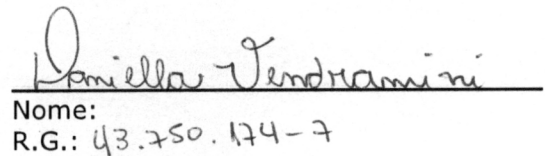 Daniella Vendramini
Nome:
R.G.: 43.750.174-7